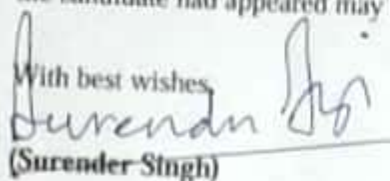 the candidate had appeared may
With best wishes,
Surender Singh
(Surender Singh)